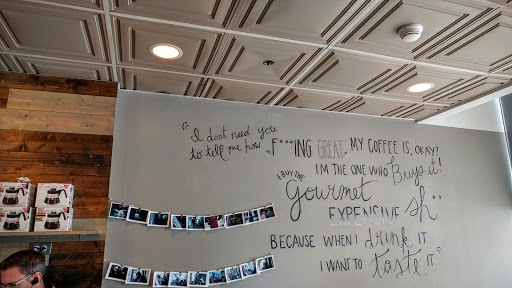 "I don't need you
to tell me how F***ING GREAT MY COFFEE IS, OKAY?
I'M THE ONE WHO Buys it!
I BUY THE
Gourmet
EXPENSIVE sh**
BECAUSE WHEN I drink IT
I WANT TO taste IT"
52